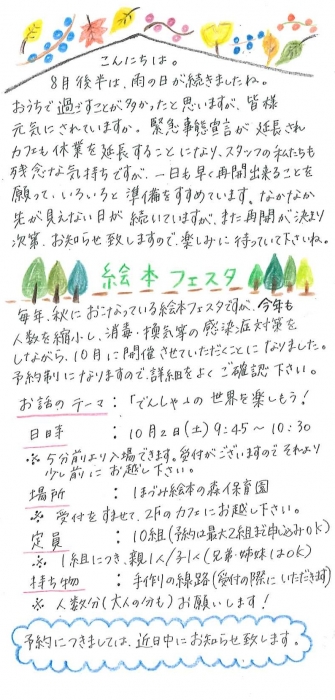 こんにちは。
8月後半は、雨の日が続きましたね。
おうちで過ごすことが多かったと思いますが、皆様
元気にされていますか。緊急事態宣言が延長され
カフェも休業を延長することになり、スタッフの私たちも
残念な気持ちですが、一日も早く再開出来ることを
願って、いろいろと準備をすすめています。なかなか
先が見えない日が続いていますが、また再開が決まり
次第、お知らせ致しますので、楽しみに待っていて下さいね。
絵本フェスタ
毎年、秋におこなっている絵本フェスタですが、今年も
人数を縮小し、消毒・換気等の感染症対策を
しながら、10月に開催させていただくことになりました。
予約制になりますので、詳細をよくご確認下さい。
お話のテーマ：「でんしゃ」の世界を楽しもう！
日時：10月2日(土)9:45〜10:30
※5分前より入場できます。受付がございますのでそれより
少し前にお越し下さい。
場所：ほづみ絵本の森保育園
※受付をすませて、2Fのカフェにお越し下さい。
定員：10組(予約は最大2組まで申込みOK)
※1組につき、親1人/子1人(兄弟・姉妹はOK)
持ち物：手作りの線路(受付の際にいただきます)
※人数分(大人の分も)お願いします！
予約につきましては、近日中にお知らせ致します。